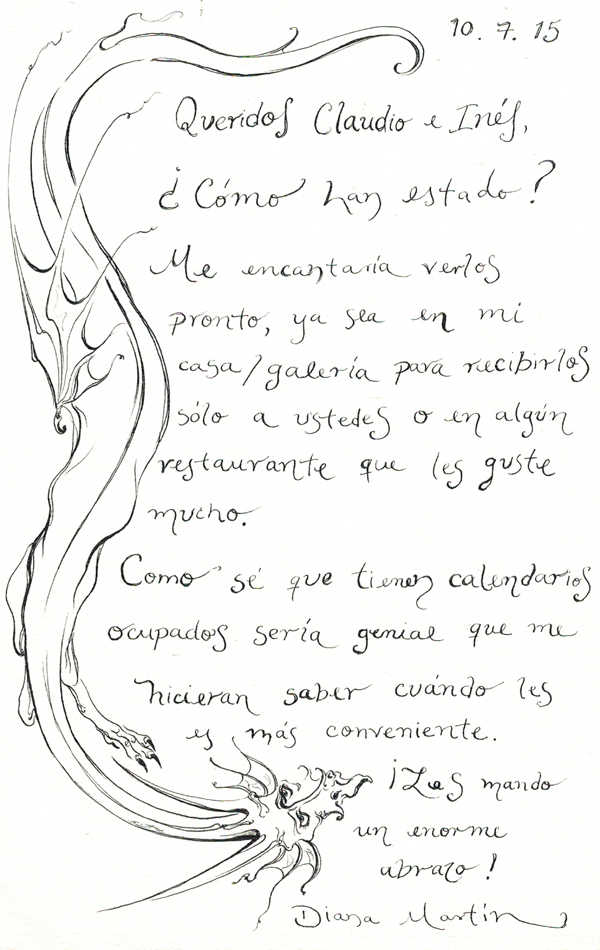 10. 7. 15
Queridos Claudio e Inés,
¿Cómo han estado?
Me encantaría verlos
pronto, ya sea en mi
casa/galería para recibirlos
sólo a ustedes o en algún
restaurante que les guste
mucho.
Como sé que tienen calendarios
ocupados sería genial que me
hicieran saber cuándo les
es más conveniente.
¡Les mando
un enorme
abrazo!
Diana Martín